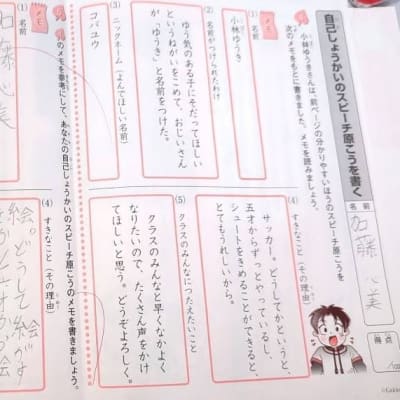 自己しょうかいのスピーチ原こうを書く
名前
加藤心美
得点
小林ゆうきさんは、前ページの分かりやすいほうのスピーチ原こうを
次のメモをもとに書きました。メモを読みましょう。
メモ
(1) 名前
小林ゆうき
(2) 名前がつけられたわけ
ゆう気のある子にそだってほしい
というねがいをこめて、おじいさん
が「ゆうき」と名前をつけた。
(3) ニックネーム（よんでほしい名前）
コバユウ
(4) すきなこと（その理由）
サッカー。どうしてかというと、
五才からずっとやっているし、
シュートをきめることができると、
とてもうれしいから。
(5) クラスのみんなにつたえたいこと
クラスのみんなと早くなかよく
なりたいので、たくさん声をかけ
てほしいと思う。どうぞよろしく。
のメモを参考にして、あなたの自己しょうかいのスピーチ原こうのメモを書きましょう。
メモ
(1) 名前
加藤心美
(4) すきなこと（その理由）
絵。どうして絵がす